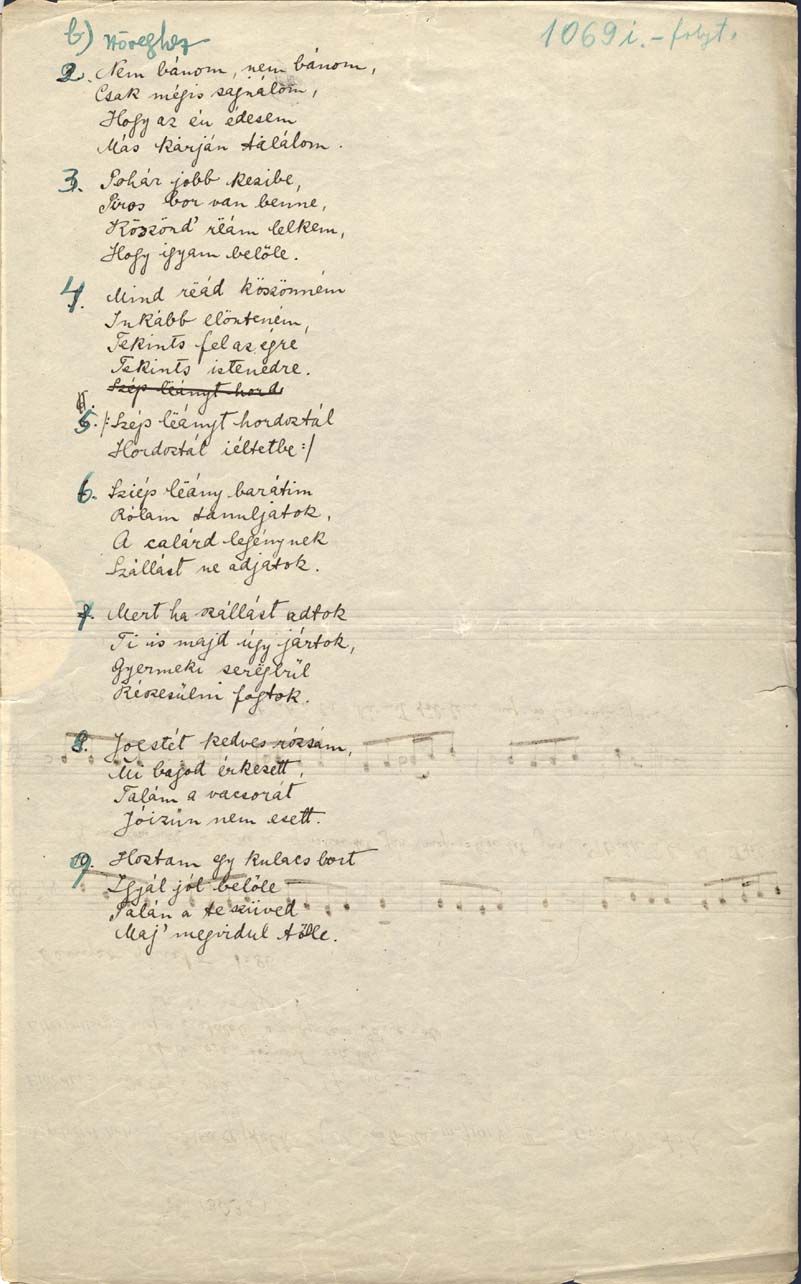 b) szöveghez
1069 i. - folyt.
2. Nem bánom, nem bánom,
Csak mégis sajnálom,
Hogy az én édesem
Más kárján tálálom.
3. Pohár jobb kezibe,
Piros bor van benne,
Köszönd' rëám lelkem,
Hogy igyam belőle.
4. Mind rëád köszönném
Inkább elönteném,
Tekints fel az égre
Tekints istenedre.
Szép lëányt hord
5. /: Szép lëányt hordoztál
Hordoztál iéltetbe :/
6. Sziép lëány barátim
Rólam tanuljatok,
A calárd legénynek
Szállást ne adjatok.
7. Mert ha szállást adtok
Ti is majd úgy jártok,
Gyermeki seregbül
Részesülni fogtok.
8. Jó estét kedves rózsám,
Mi bajod érkezett,
Talám a vacsorát
Jóizün nem esett.
9. Hoztam egy kulacs bort
Igjál jól belőle
Talán a te szüved
Maj' megvidul tőlle.